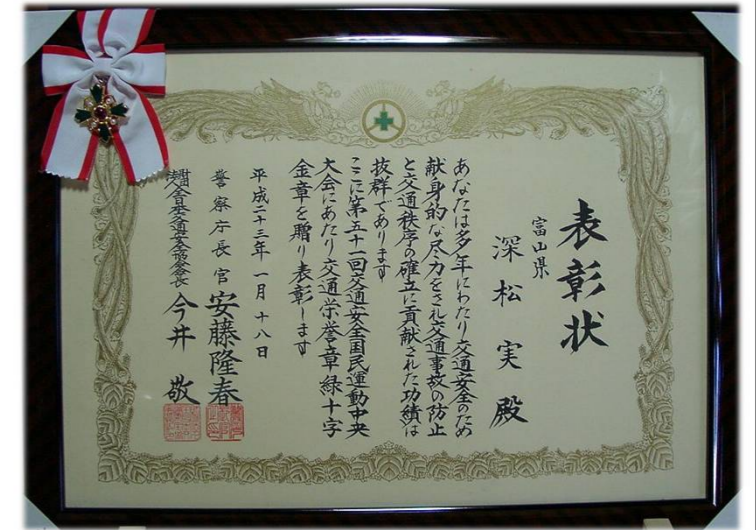 表彰状
富山県
深松実殿
あなたは多年にわたり交通安全のため
献身的な尽力をされ交通事故の防止
と交通秩序の確立に貢献された功績は
抜群であります
ここに第五十一回交通安全国民運動中央
大会にあたり交通栄誉章緑十字
金章を贈り表彰します
平成二十三年一月十八日
警察庁長官 安藤隆春
財団法人全日本交通安全協会会長 今井敬